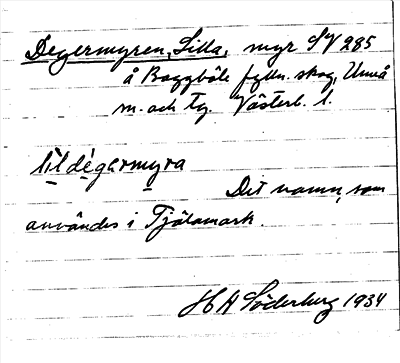 Degermyren, Lilla, myr SV 285
å Baggböle fylln. skog, Umeå
m. och tg. Västerb. l.
lildegarmyra
Det namn, som
användes i Tjälamark.
H A Söderberg 1934